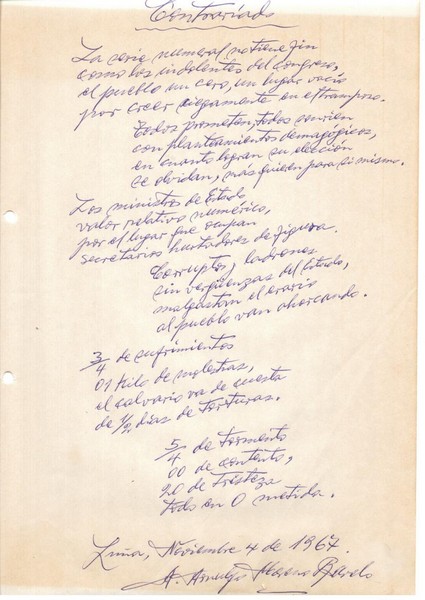 Contrariado
La serie numeral no tiene fin
como los indolentes del congreso,
el pueblo un cero, un lugar vacío
por creer ciegamente en el tramposo.
Todos prometen, todos sonríen
con planteamientos demagógicos,
en cuanto logran su elección
se olvidan, más quieren para sí mismo.
Los ministros de Estado
valor relativo numérico,
por el lugar que ocupan
secretarios hurtadores de figura.
Corruptos, ladrones
sin vergüenzas del Estado,
malgastan el erario
al pueblo van ahorcando.
3/4 de sufrimientos
01 kilo de molestias,
el calvario va de cuesta
de 1/2 días de torturas.
5/4 de tormento
00 de contento,
20 de tristeza
todo en 0 metida.
Noviembre 4 de 1967.
A. Moreno